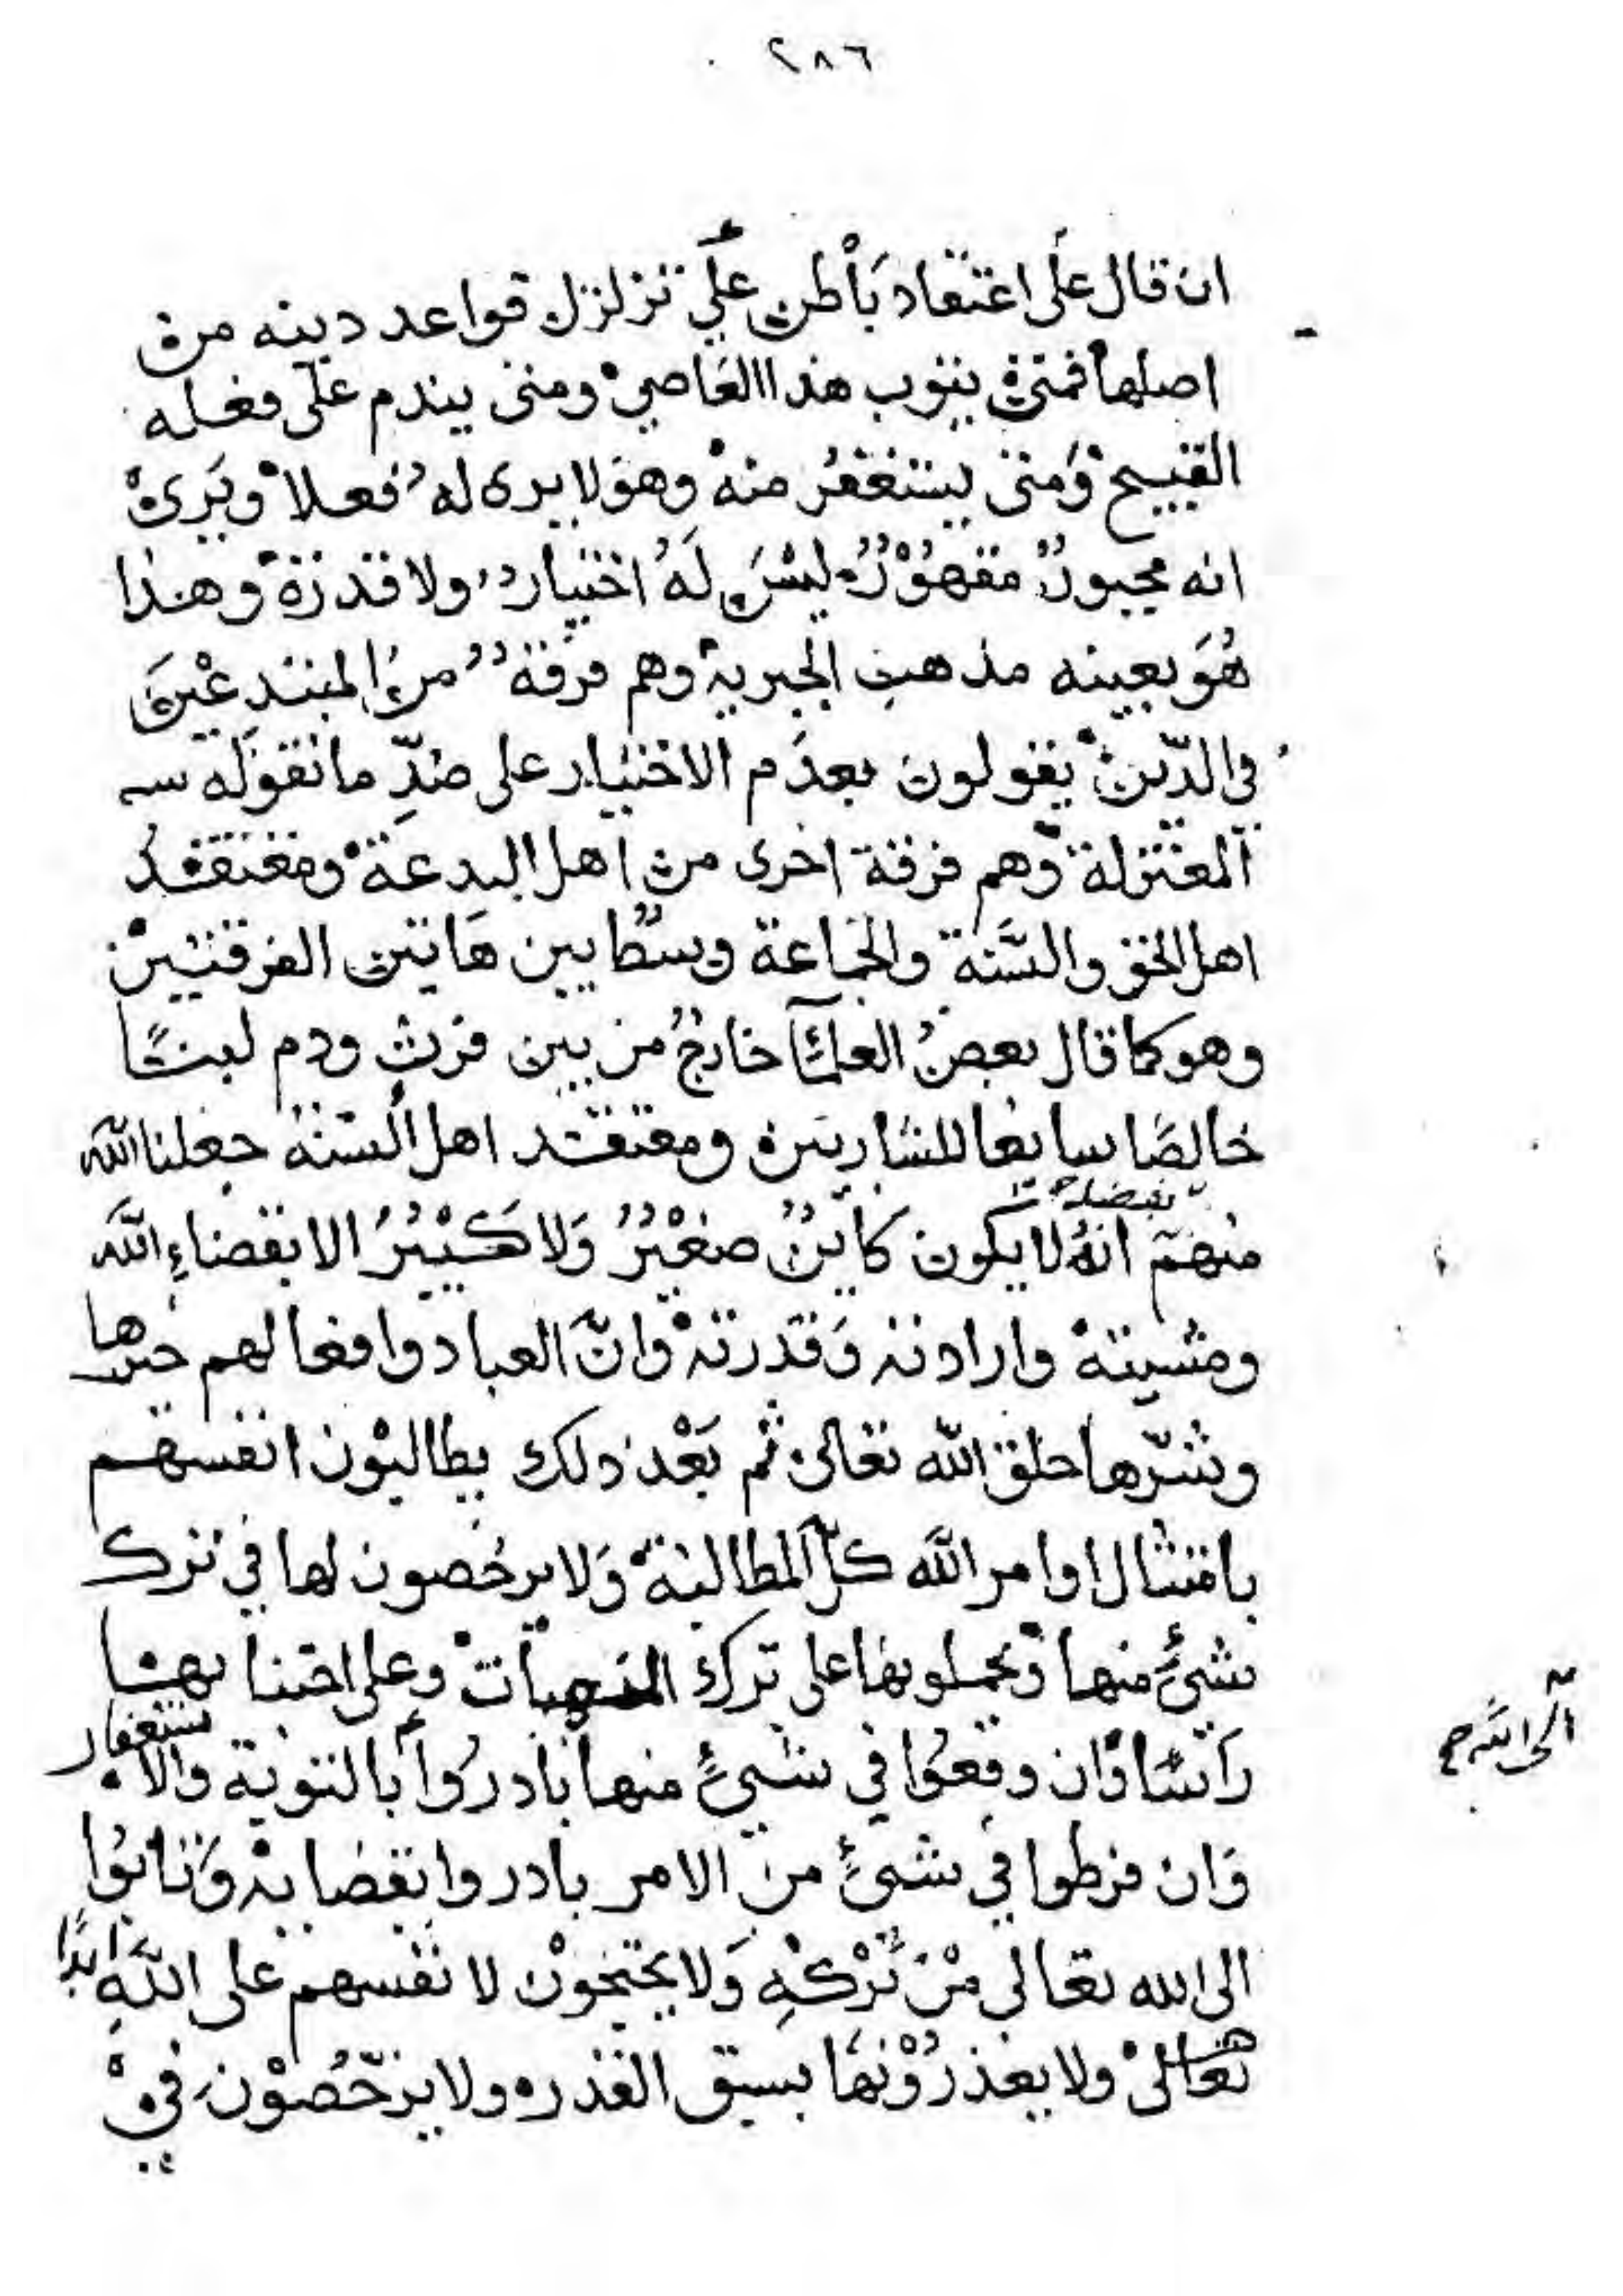 ٢٨٦
ان قال على اعتقاد باطن علي تزلزل قواعد دينه من
اصلها فمتى يتوب هذا العاصي ومتى يندم على فعله
القبيح ومتى يستغفر منه وهو لا يرى له فعلا ويرى
انه مجبور مقهور ليس له اختيار ولا قدرة وهذا
هو بعينه مذهب الجبرية وهم فرقة من المبتدعين
في الدين يقولون بعدم الاختيار على ضد ما تقوله
المعتزلة وهم فرقة اخرى من اهل البدعة ومعتقد
اهل الحق والسنة والجماعة وسطا بين هاتين الفرقتين
وهو كما قال بعض العلماء خارج من بين فرث ودم لبنا
خالصا سايغا للشاربين ومعتقد اهل السنة جعلنا الله
منهم بفضله انه لا يكون كاين صغير ولا كبير الا بقضاء الله
ومشيته وارادته وقدرته وان العباد وافعالهم خيرها
وشرها خلق الله تعالى ثم بعد ذلك يطالبون انفسهم
بامتثال اوامر الله كل المطالبة ولا يرخصون لها في ترك
شيء منها ويحملونها على ترك المنهيات وعلى اجتنابها
راسا وان وقعوا في شيء منها بادروا بالتوبة والاستغفار
الى الله صح
وان فرطوا في شيء من الامر بادروا بقضايه وتابوا
الى الله تعالى من تركه ولا يحتجون لانفسهم على الله ابدا
تعالى ولا يعذرونها بسبق القدر ولا يرخصون في